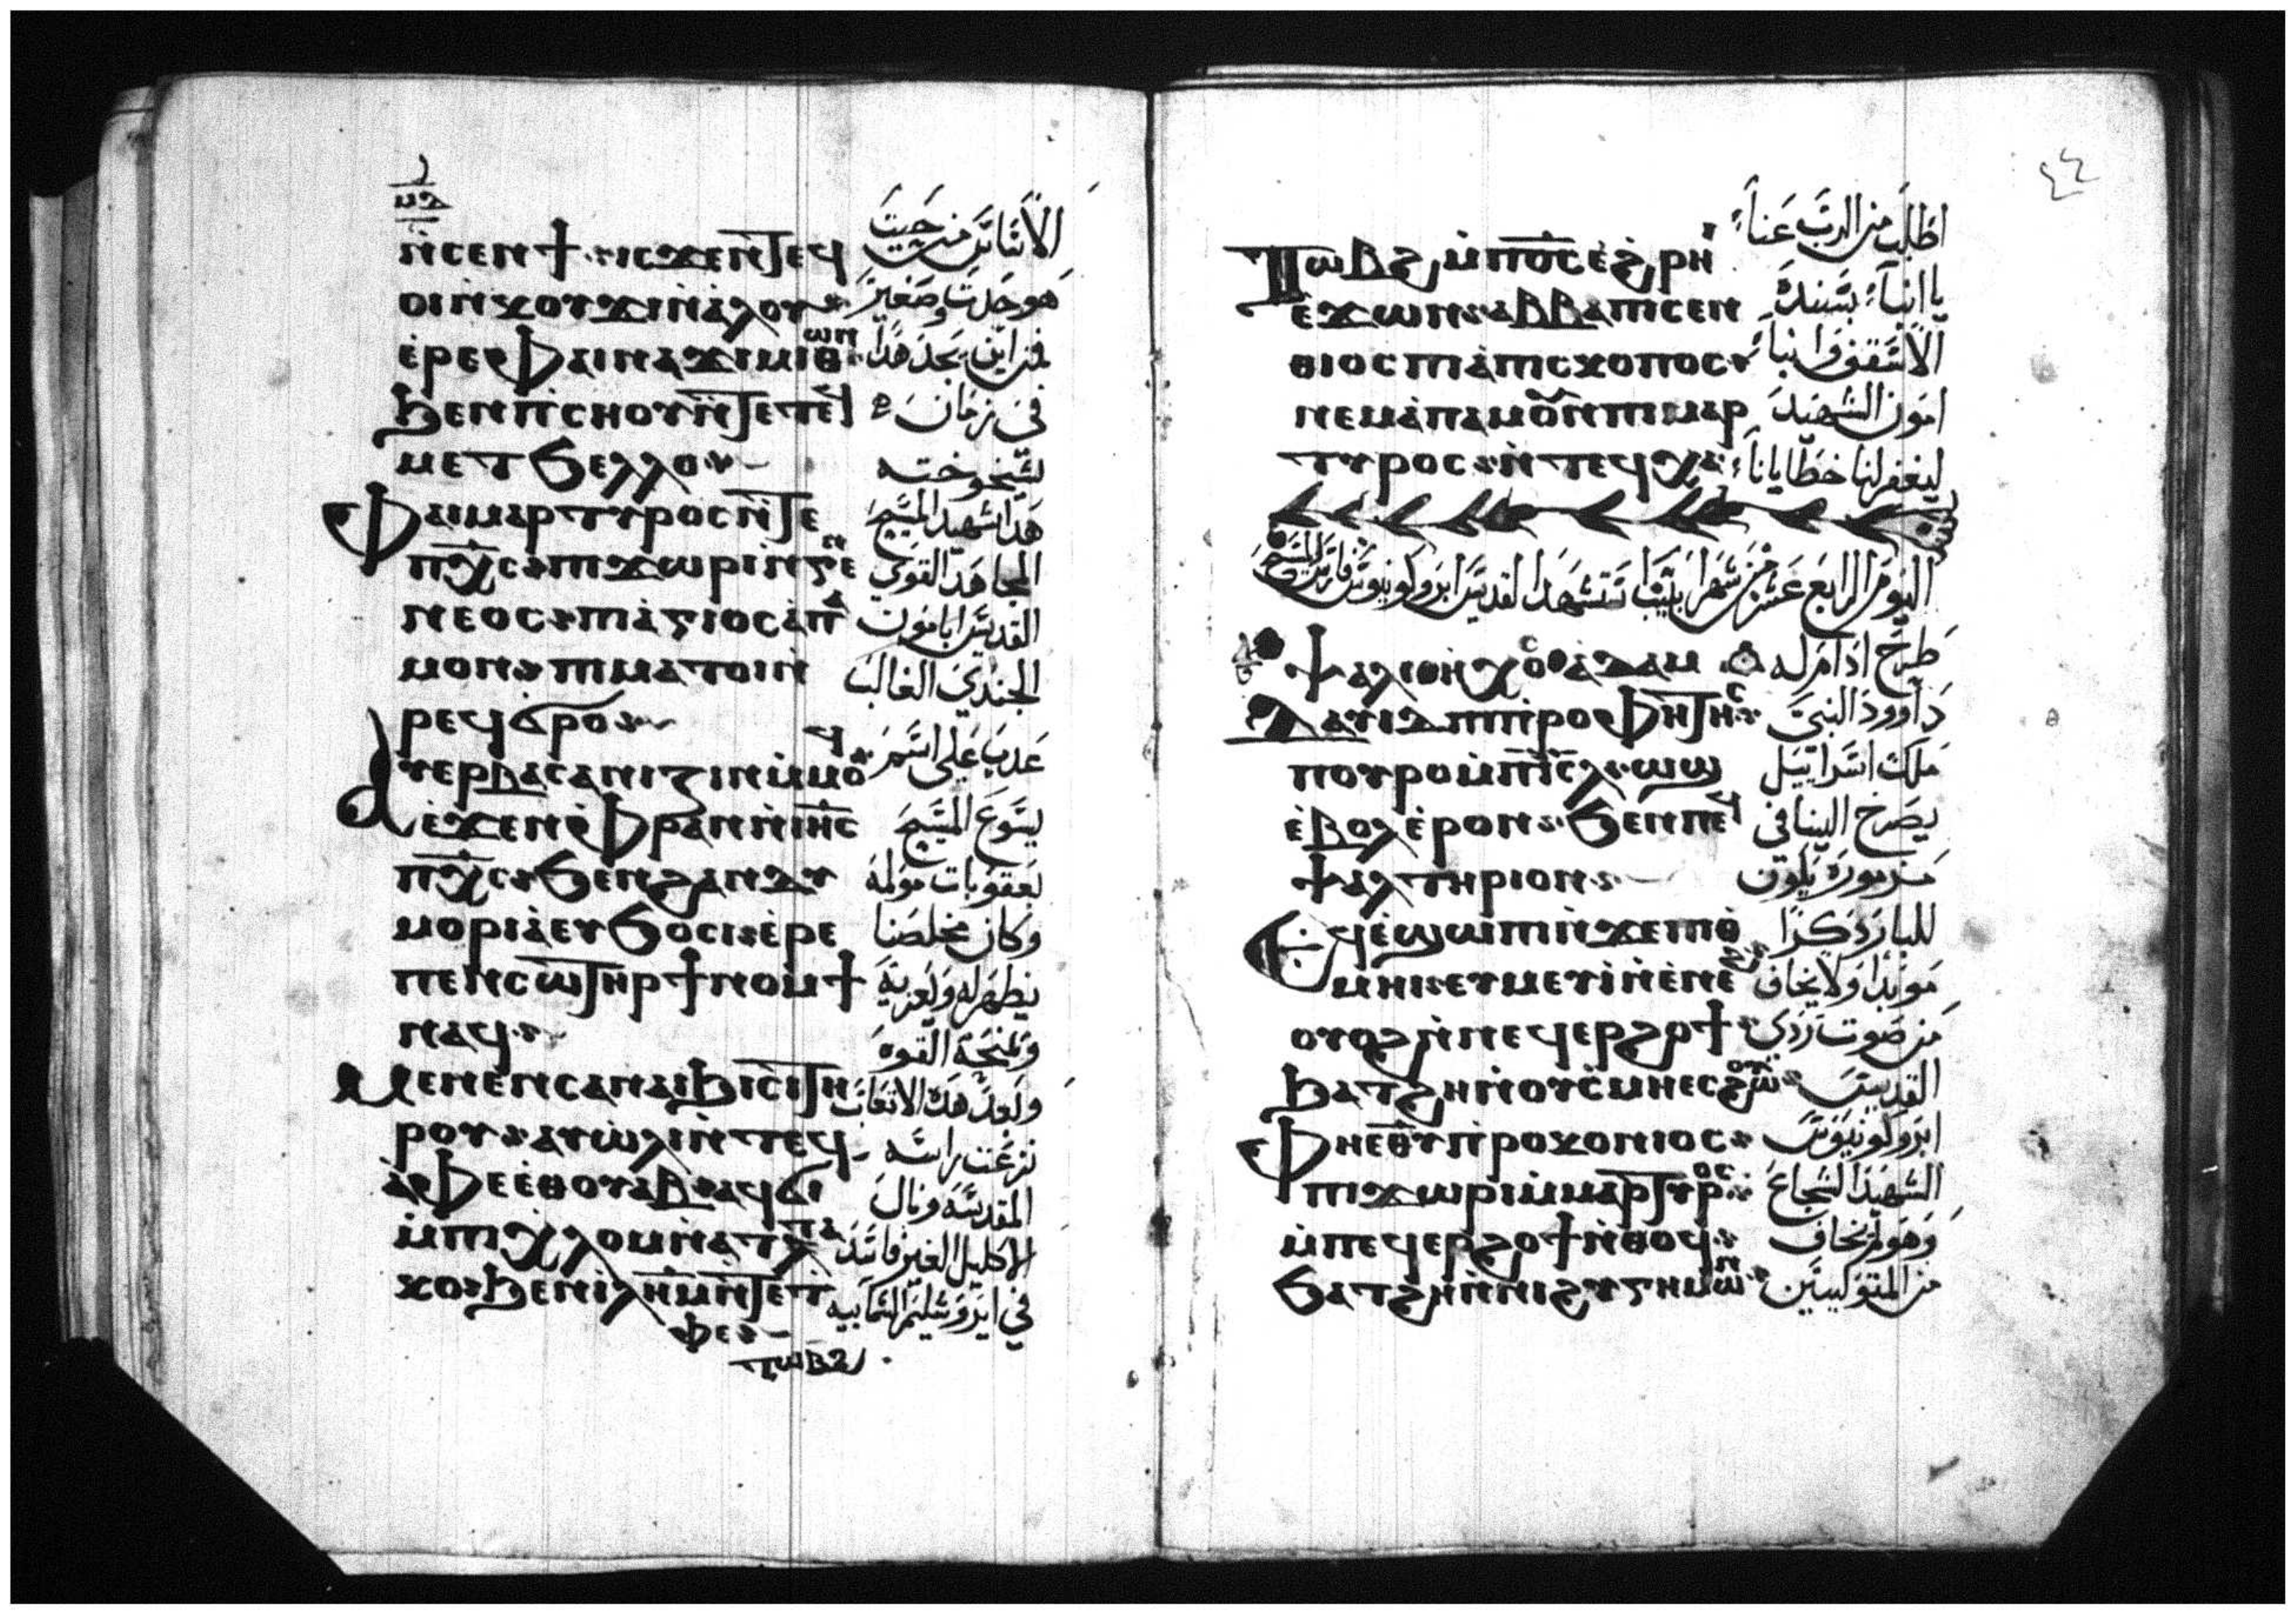 ⲙⲇ
ⲛ̀ⲥⲉⲛϯ ⲓⲥϫⲉⲛ ⲧⲉϥ
الاساس من حيث
هو حدث وصغير
ⲉ̀ⲣⲉ ⲫⲁⲓ ⲛⲁϫⲓⲙⲓ ⲑⲱⲛ
فمن اين يجد هدا
ϧⲉⲛ ⲡ̀ⲥⲏⲟⲩ ⲛ̀ⲧⲉ ⲧⲉϥ
في زمان
ⲙⲉⲧϧⲉⲗⲗⲟ
شيخوخته
ⲫⲁⲓ ⲙⲁⲣⲧⲩⲣⲟⲥ ⲛ̀ⲧⲉ
هدا شهيد المسيح
ⲡⲭ̅ⲥ ⲡⲓϫⲱⲣⲓ ⲛ̀ⲅⲉⲛ
المجاهد القوي
ⲛⲉⲟⲥ ⲡⲓⲁ̀ⲅⲓⲟⲥ ⲁ̀ⲡⲁ
القديس ابامون
ⲙⲟⲛ ⲡⲓⲙⲁⲧⲟⲓ ⲛ̀
الجندي الغالب
ⲣⲉϥϭⲣⲟ
ⲁⲩⲉⲣⲃⲁⲥⲁⲛⲓⲍⲓⲛ ⲙ̀ⲙⲟϥ
عدب علي اسم
ⲉ̀ϫⲉⲛ ⲫ̀ⲣⲁⲛ ⲛ̀ⲓⲏ̅ⲥ
يسوع المسيح
ⲡⲭ̅ⲥ ϧⲉⲛ ϩⲁⲛⲇⲩ
بعقوبات مولمه
ⲙⲟⲣⲓⲁ̀ ⲉⲩϧⲟⲥⲓ ⲉ̀ⲣⲉ
وكان مخلصنا
ⲡⲉⲛⲥⲱⲧⲏⲣ ϯⲛⲟⲙϯ
يظهر له ويعزيه
ⲛⲁϥ
ويمنحه القوه
ⲙⲉⲛⲉⲛⲥⲁ ⲛⲁⲓϧⲓⲥⲓ ⲧⲏ
وبعد هده الاتعاب
ⲣⲟⲩ ⲁⲩⲱ̀ⲗⲓ ⲛ̀ⲧⲉϥ
نزعت راسه
ⲁ̀ⲫⲉ ⲉ̀ⲑⲟⲩⲁⲃ ⲁϥϭⲓ
المقدسه ونال
ⲙ̀ⲡⲓⲭ̀ⲗⲟⲙ ⲛ̀ⲁⲧⲧⲁ
الاكليل الغير فاسد
ⲕⲟ ϧⲉⲛ ⲓⲗ̅ⲏ̅ⲙ̅ ⲛ̀ⲧⲉ ⲧ
في ايروشليم السماييه
ⲫⲉ
ⲧⲱⲃϩ
٤٤
ⲧⲱⲃϩ ⲙ̀ⲡⲟ̅ⲥ̅ ⲉ̀ϩ̀ⲣⲏⲓ
اطلب من الرب عنا
ⲉ̀ϫⲱⲛ ⲁⲃⲃⲁ ⲡⲓⲥⲉⲛ
يا انبا بسنده
ⲑⲓⲟⲥ ⲡⲓⲁ̀ⲡⲓⲥⲕⲟⲡⲟⲥ
الاسقف وانبا
ⲛⲉⲙ ⲁ̀ⲡⲁⲙⲟⲛ ⲡⲓⲙⲁⲣ
امون الشهيد
ⲧⲩⲣⲟⲥ ⲛ̀ⲧⲉϥⲭⲁ
ليغفر لنا خطايانا
اليوم الرابع عشر من شهر ابيب استشهد القديس ابروكونيوس
طرح ادام له
ⲇⲁⲩⲓⲇ ⲡⲓⲡ̀ⲣⲟⲫⲏⲧⲏⲥ
داوود النبي
ⲡⲟⲩⲣⲟ ⲙ̀ⲡⲓ̅ⲥ̅ⲗ̅ ⲱϣ
ملك اسراييل
ⲉ̀ⲃⲟⲗ ⲉ̀ⲣⲟⲛ ϧⲉⲛ ⲡⲉϥ
يصرخ الينا في
ⲯⲁⲗⲧⲏⲣⲓⲟⲛ
مزموره يكون
ⲉϥⲉ̀ϣⲱⲡⲓ ⲛ̀ϫⲉ ⲡⲓⲑ̀
للبار ذكرا
ⲙⲏⲓ ⲉⲩⲙⲉⲩⲓ̀ ⲛ̀ⲉ̀ⲛⲉϩ
موبدا ولا يخاف
ⲟⲩⲟϩ ⲛ̀ⲛⲉϥⲉⲣϩⲟϯ
من صوت ردي
ϧⲁⲧϩⲏ ⲛ̀ⲟⲩⲥ̀ⲙⲏ ⲉⲥϩⲱⲟⲩ
القديس
ⲫⲏⲉⲑⲩ ⲡ̀ⲣⲟⲕⲟⲛⲓⲟⲥ
ابروكونيوس
ⲡⲓϫⲱⲣⲓ ⲙ̀ⲙⲁⲣⲧⲩⲣⲟⲥ
الشهيد الشجاع
ⲙ̀ⲡⲉϥⲉⲣϩⲟϯ ⲛ̀ⲑⲟϥ
وهو لم يخاف
ϧⲁⲧϩⲏ ⲛ̀ⲛⲓϩⲩⲅⲏⲙⲱⲛ
من المتوليين